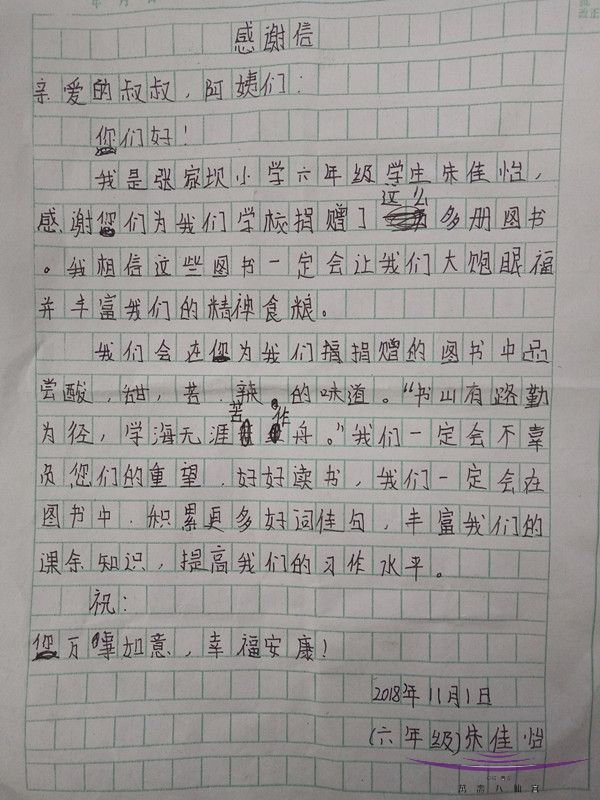 感谢信
亲爱的叔叔，阿姨们：
您们好！
我是张家坝小学六年级学生朱佳怡，
感谢您们为我们学校捐赠了这么多册图书
。我相信这些图书一定会让我们大饱眼福
并丰富我们的精神食粮。
我们会在您为我们捐赠的图书中品
尝酸，甜，苦，辣。的味道。“书山有路勤
为径，学海无涯苦作舟。”我们一定会不辜
负您们的重望，好好读书，我们一定会在
图书中，积累更多好词佳句，丰富我们的
课余知识，提高我们的习作水平。
祝：
您万事如意，幸福安康！
2018年11月1日
（六年级）朱佳怡
万寿八仙宫